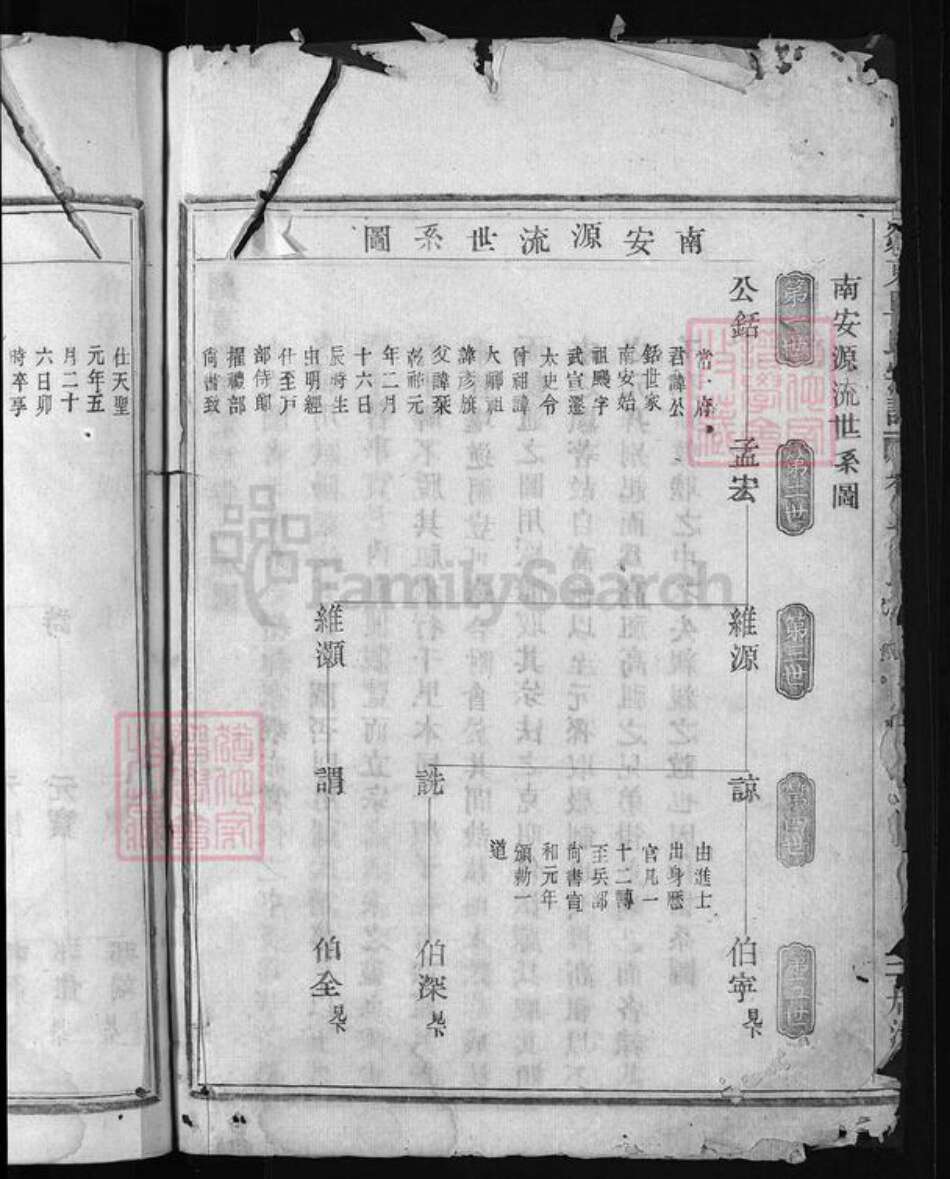 南安源流世系圖
南安源流世系圖
第一世
第二世
第三世
第四世
第五世
公銛
孟宏
維源
諒
伯寧 見下
常一府
君諱公
銛世家
南安始
祖颺字
武宣遷
太史令
晉祖諱
大卿祖
諱彥旗
父諱琹
乾祐元
年二月
十六日
辰時生
由明經
仕至戶
部侍郎
擢禮部
尚書致
由進士
出身歷
官凡一
十二轉
至兵部
尚書宣
和元年
頒勅一
道
詵
伯深 見下
維灝
謂
伯全 見下
仕天聖
元年五
月二十
六日卯
時卒享
FamilySearch